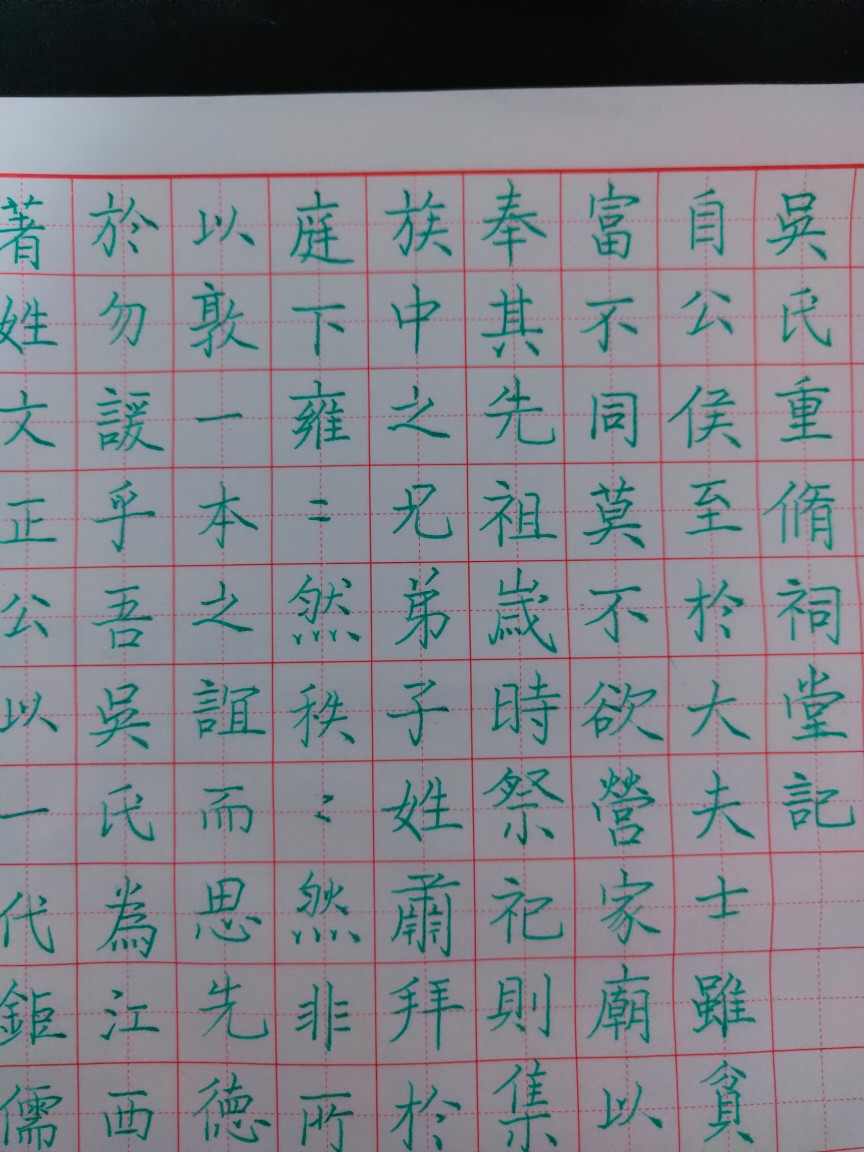 吳氏重脩祠堂記
自公侯至於大夫士雖貧
富不同莫不欲營家廟以
奉其先祖歲時祭祀則集
族中之兄弟子姓肅拜於
庭下雍〻然秩〻然非所
以敦一本之誼而思先德
於勿諼乎吾吳氏為江西
著姓文正公以一代鉅儒